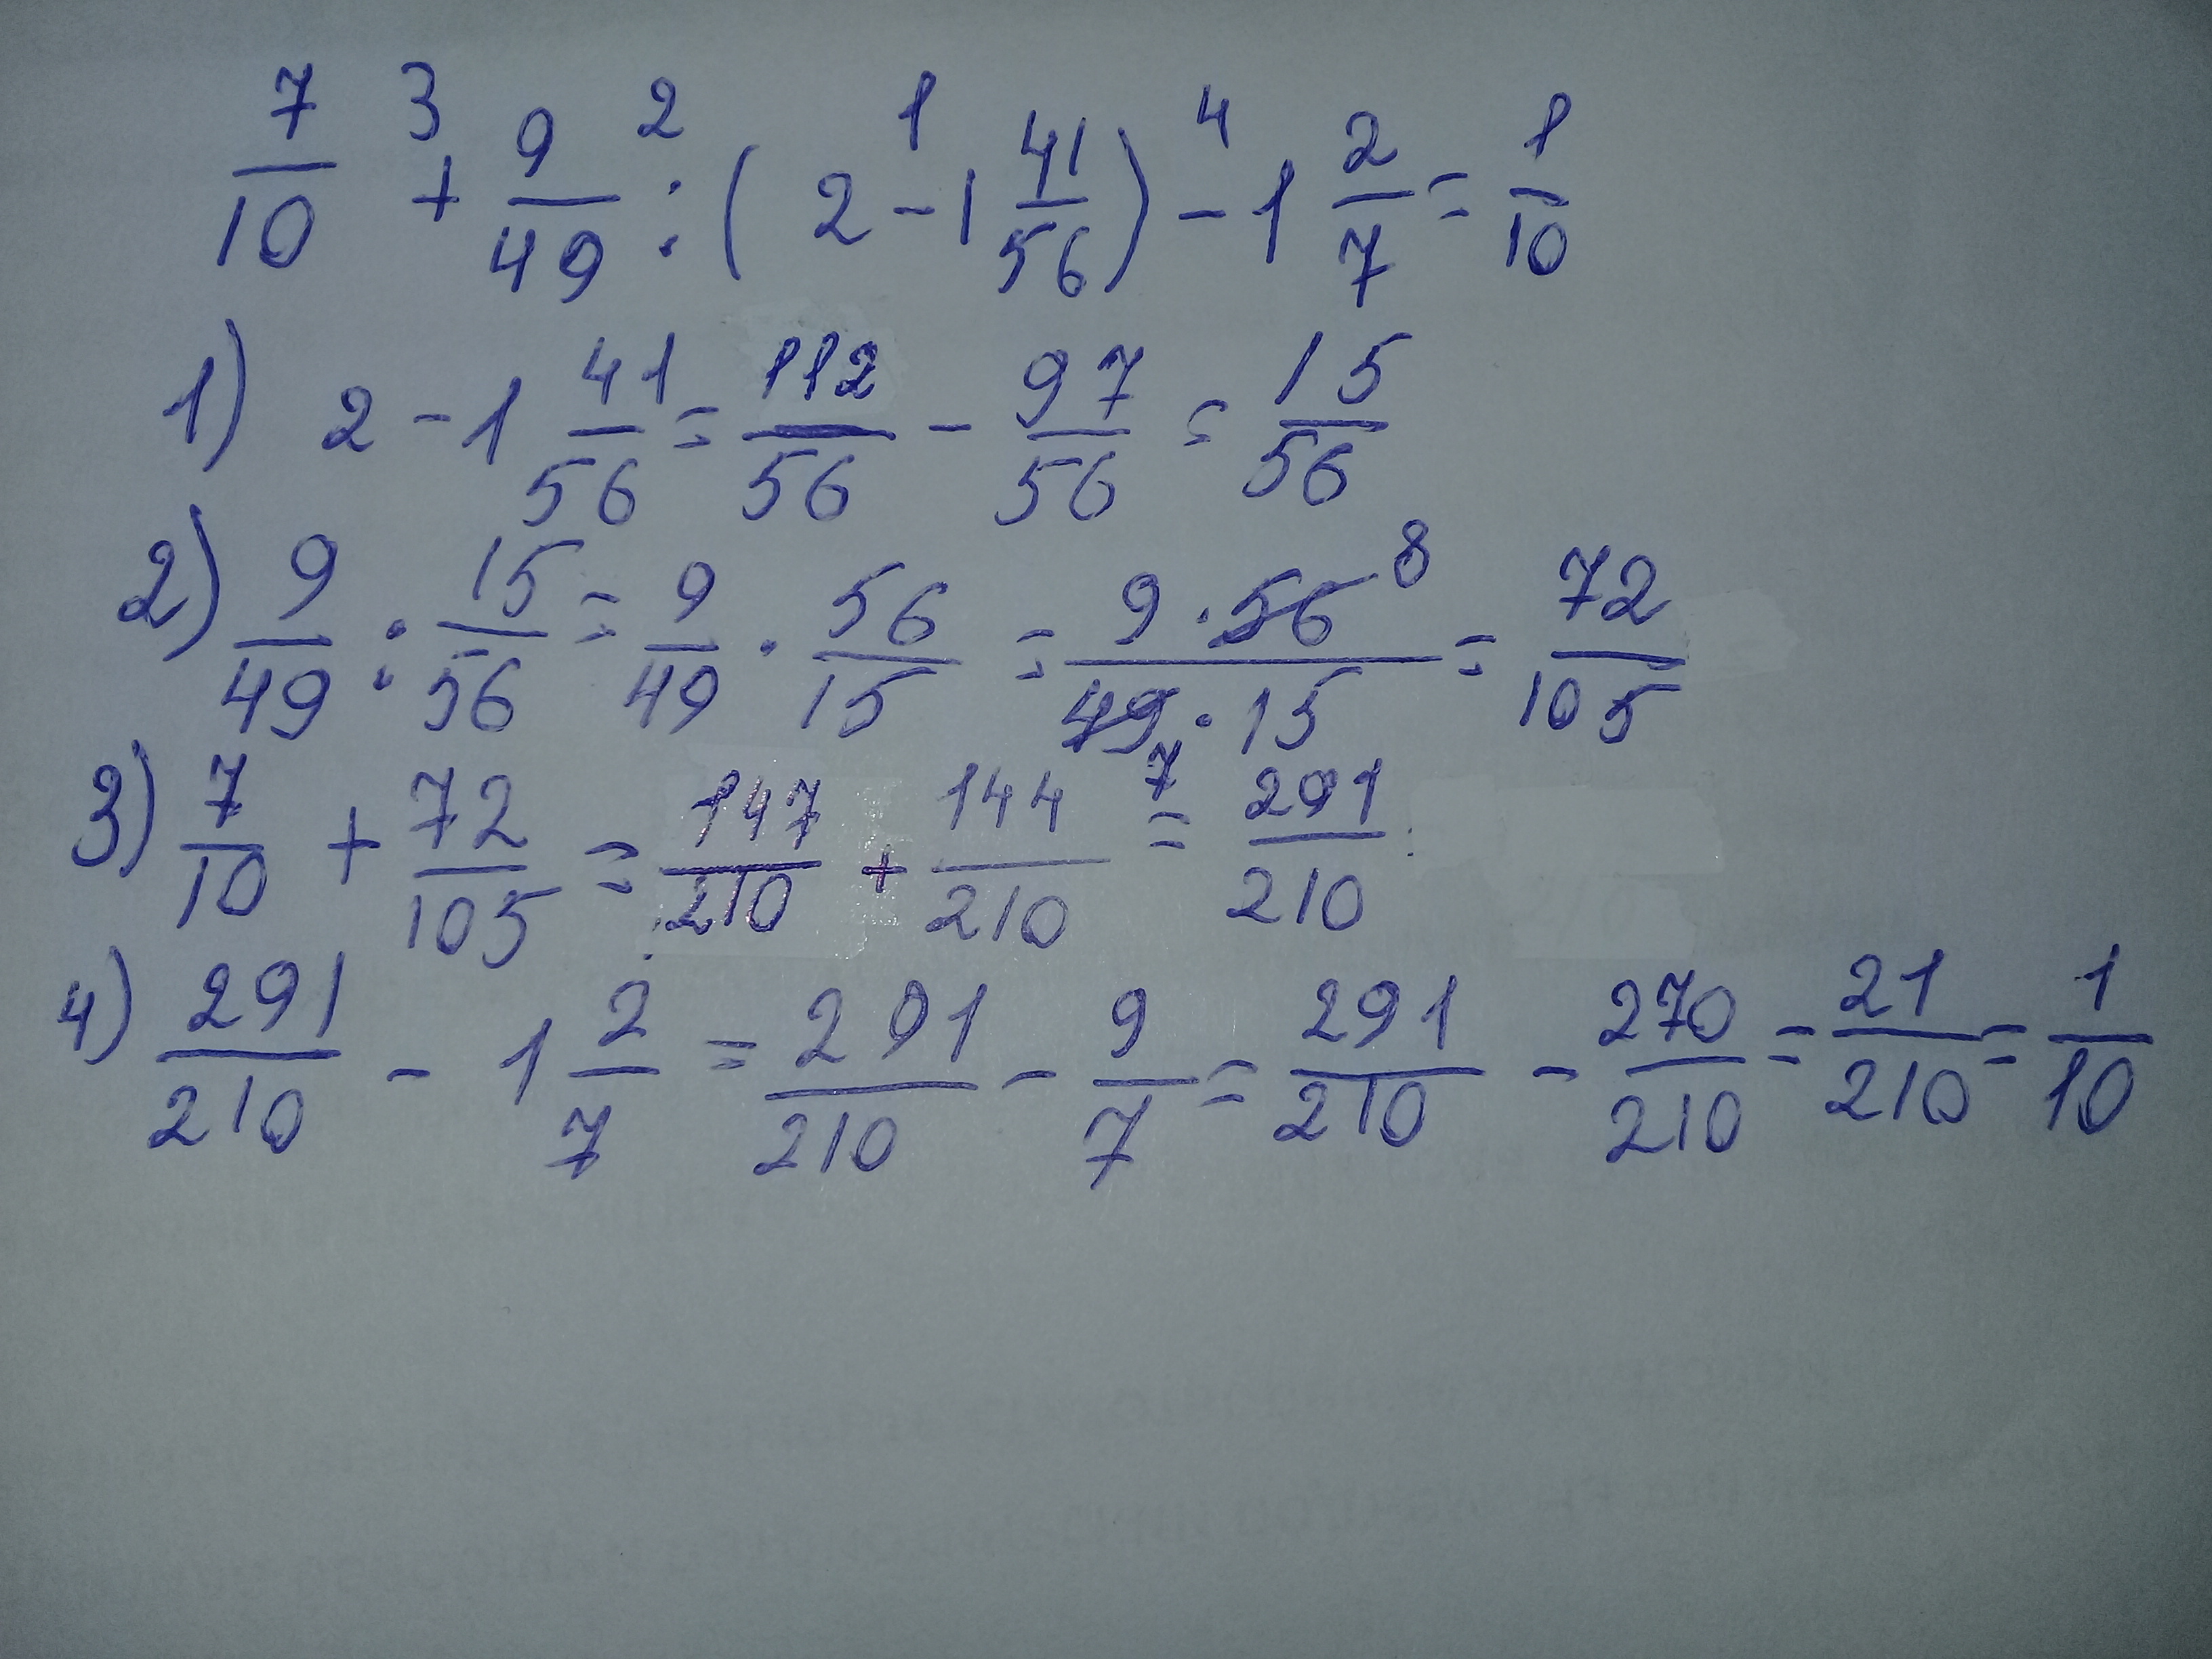 7/10 +³ 9/49 :² (2 -¹ 1 41/56) -⁴ 1 2/7 = 1/10
1) 2 - 1 41/56 = 112/56 - 97/56 = 15/56
2) 9/49 : 15/56 = 9/49 · 56/15 = 9·56 8/49·15 7 = 72/105
3) 7/10 + 72/105 = 147/210 + 144/210 = 291/210
4) 291/210 - 1 2/7 = 291/210 - 9/7 = 291/210 - 270/210 = 21/210 = 1/10